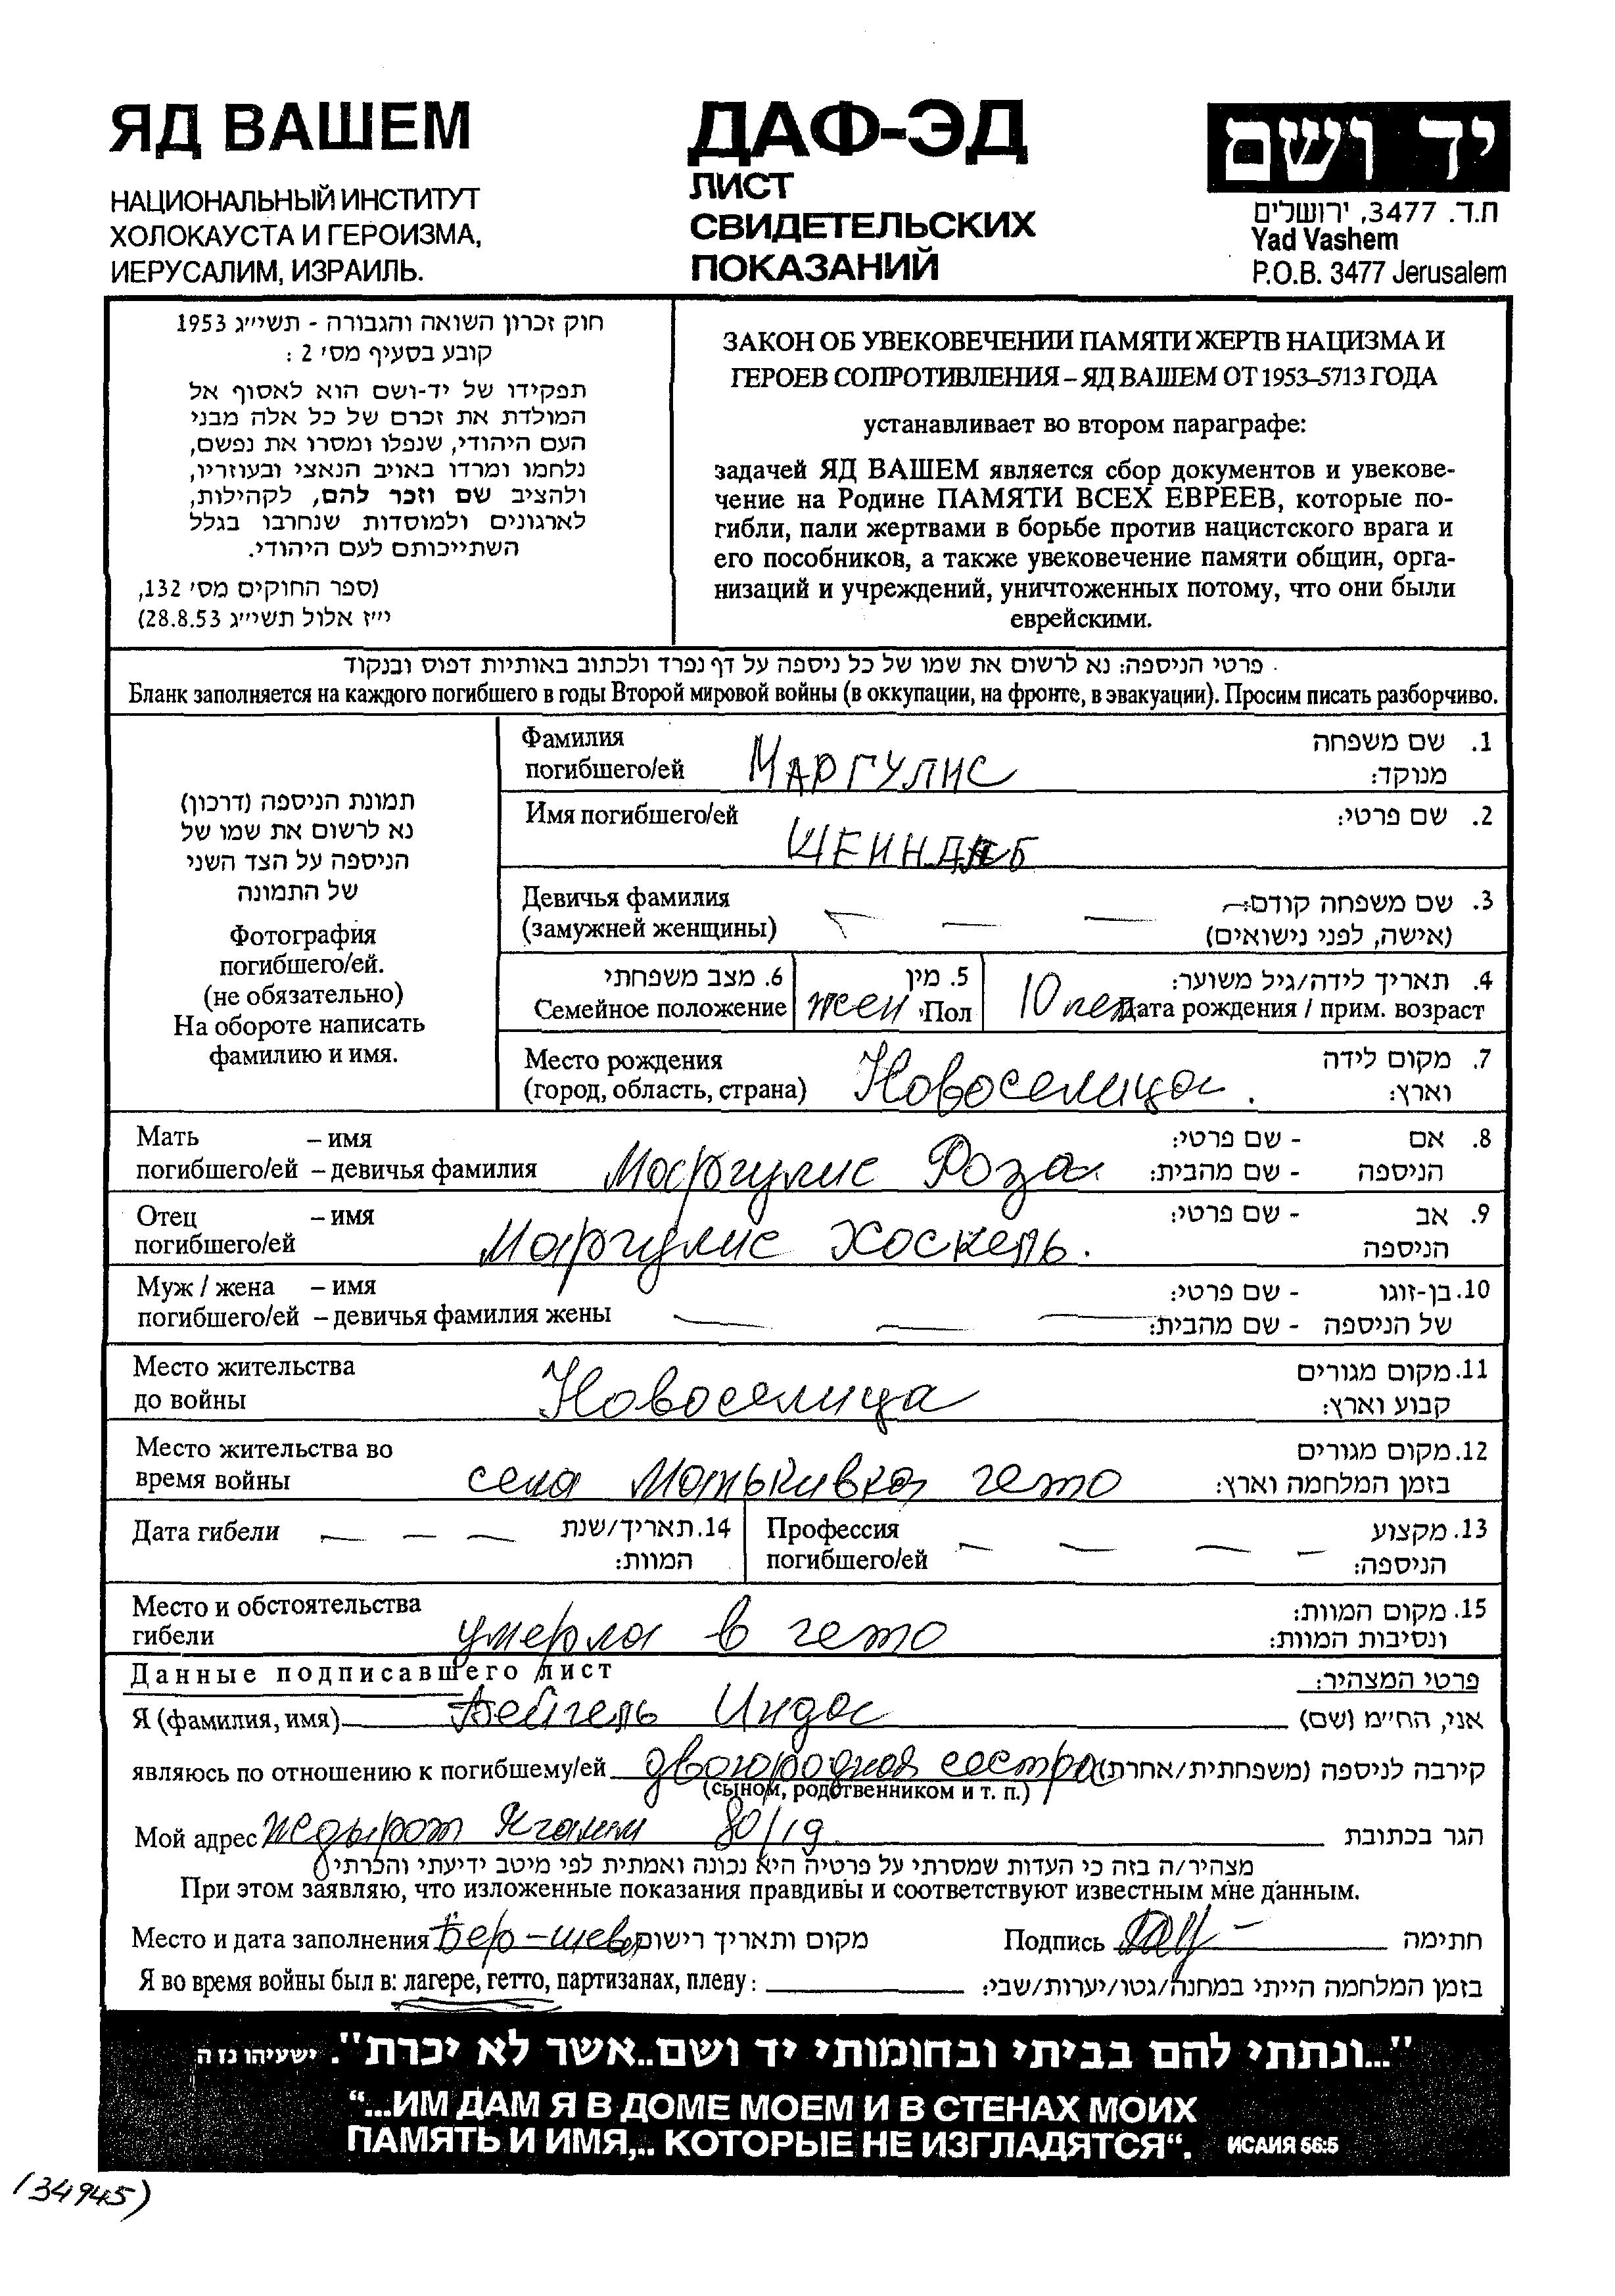 ЯД ВАШЕМ
НАЦИОНАЛЬНЫЙ ИНСТИТУТ
ХОЛОКАУСТА И ГЕРОИЗМА,
ИЕРУСАЛИМ, ИЗРАИЛЬ.
ДАФ-ЭД
ЛИСТ
СВИДЕТЕЛЬСКИХ
ПОКАЗАНИЙ
יד ושם
ת.ד. 3477, ירושלים
Yad Vashem
P.O.B. 3477 Jerusalem
חוק זכרון השואה והגבורה - תשי״ג 1953
קובע בסעיף מס׳ 2 :
תפקידו של יד-ושם הוא לאסוף אל
המולדת את זכרם של כל אלה מבני
העם היהודי, שנפלו ומסרו את נפשם,
נלחמו ומרדו באויב הנאצי ובעוזריו,
ולהציב שם וזכר להם, לקהילות,
לארגונים ולמוסדות שנחרבו בגלל
השתייכותם לעם היהודי.
(ספר החוקים מס׳ 132,
י״ז אלול תשי״ג 28.8.53)
ЗАКОН ОБ УВЕКОВЕЧЕНИИ ПАМЯТИ ЖЕРТВ НАЦИЗМА И
ГЕРОЕВ СОПРОТИВЛЕНИЯ – ЯД ВАШЕМ ОТ 1953–5713 ГОДА
устанавливает во втором параграфе:
задачей ЯД ВАШЕМ является сбор документов и увекове-
чение на Родине ПАМЯТИ ВСЕХ ЕВРЕЕВ, которые по-
гибли, пали жертвами в борьбе против нацистского врага и
его пособников, а также увековечение памяти общин, орга-
низаций и учреждений, уничтоженных потому, что они были
еврейскими.
פרטי הניספה: נא לרשום את שמו של כל ניספה על דף נפרד ולכתוב באותיות דפוס ובנקוד
Бланк заполняется на каждого погибшего в годы Второй мировой войны (в оккупации, на фронте, в эвакуации). Просим писать разборчиво.
תמונת הניספה (דרכון)
נא לרשום את שמו של
הניספה על הצד השני
של התמונה
Фотография
погибшего/ей.
(не обязательно)
На обороте написать
фамилию и имя.
Фамилия 1. שם משפחה
погибшего/ей МАРГУЛИС מנוקד:
Имя погибшего/ей 2. שם פרטי:
Девичья фамилия 3. שם משפחה קודם:
(замужней женщины) – – – (אישה, לפני נישואים)
6. מצב משפחתי 5. מין 4. תאריך לידה/גיל משוער:
Семейное положение жен Пол 10 лет Дата рождения / прим. возраст
Место рождения 7. מקום לידה
(город, область, страна) Новоселица. וארץ:
Мать – имя - שם פרטי: 8. אם
погибшего/ей – девичья фамилия Маргулис Роза - שם מהבית: הניספה
Отец – имя - שם פרטי: 9. אב
погибшего/ей Маргулис Хоскель. הניספה
Муж / жена – имя - שם פרטי: 10. בן-זוגו
погибшего/ей – девичья фамилия жены – – – - שם מהבית: של הניספה
Место жительства 11. מקום מגורים
до войны Новоселица קבוע וארץ:
Место жительства во 12. מקום מגורים
время войны села Матькивка гето בזמן המלחמה וארץ:
Дата гибели – – – 14. תאריך/שנת Профессия – – – – 13. מקצוע
המוות: погибшего/ей הניספה:
Место и обстоятельства 15. מקום המוות:
гибели умерла в гето ונסיבות המוות:
Данные подписавшего лист פרטי המצהיר:
Я (фамилия, имя) Бейгель Инда אני, הח״מ (שם)
являюсь по отношению к погибшему/ей двоюродная сестра קירבה לניספה (משפחתית/אחרת)
(сыном, родственником и т. п.)
Мой адрес 80/19 הגר בכתובת
מצהיר/ה בזה כי העדות שמסרתי על פרטיה היא נכונה ואמתית לפי מיטב ידיעתי והכרתי
При этом заявляю, что изложенные показания правдивы и соответствуют известным мне данным.
Место и дата заполнения Бер-шева מקום ותאריך רישום Подпись חתימה
Я во время войны был в: лагере, гетто, партизанах, плену: בזמן המלחמה הייתי במחנה/גטו/יערות/שבי:
"...ונתתי להם בביתי ובחומותי יד ושם..אשר לא יכרת". ישעיהו נז ה
“...ИМ ДАМ Я В ДОМЕ МОЕМ И В СТЕНАХ МОИХ
ПАМЯТЬ И ИМЯ,.. КОТОРЫЕ НЕ ИЗГЛАДЯТСЯ“. ИСАИЯ 56:5
(34945)